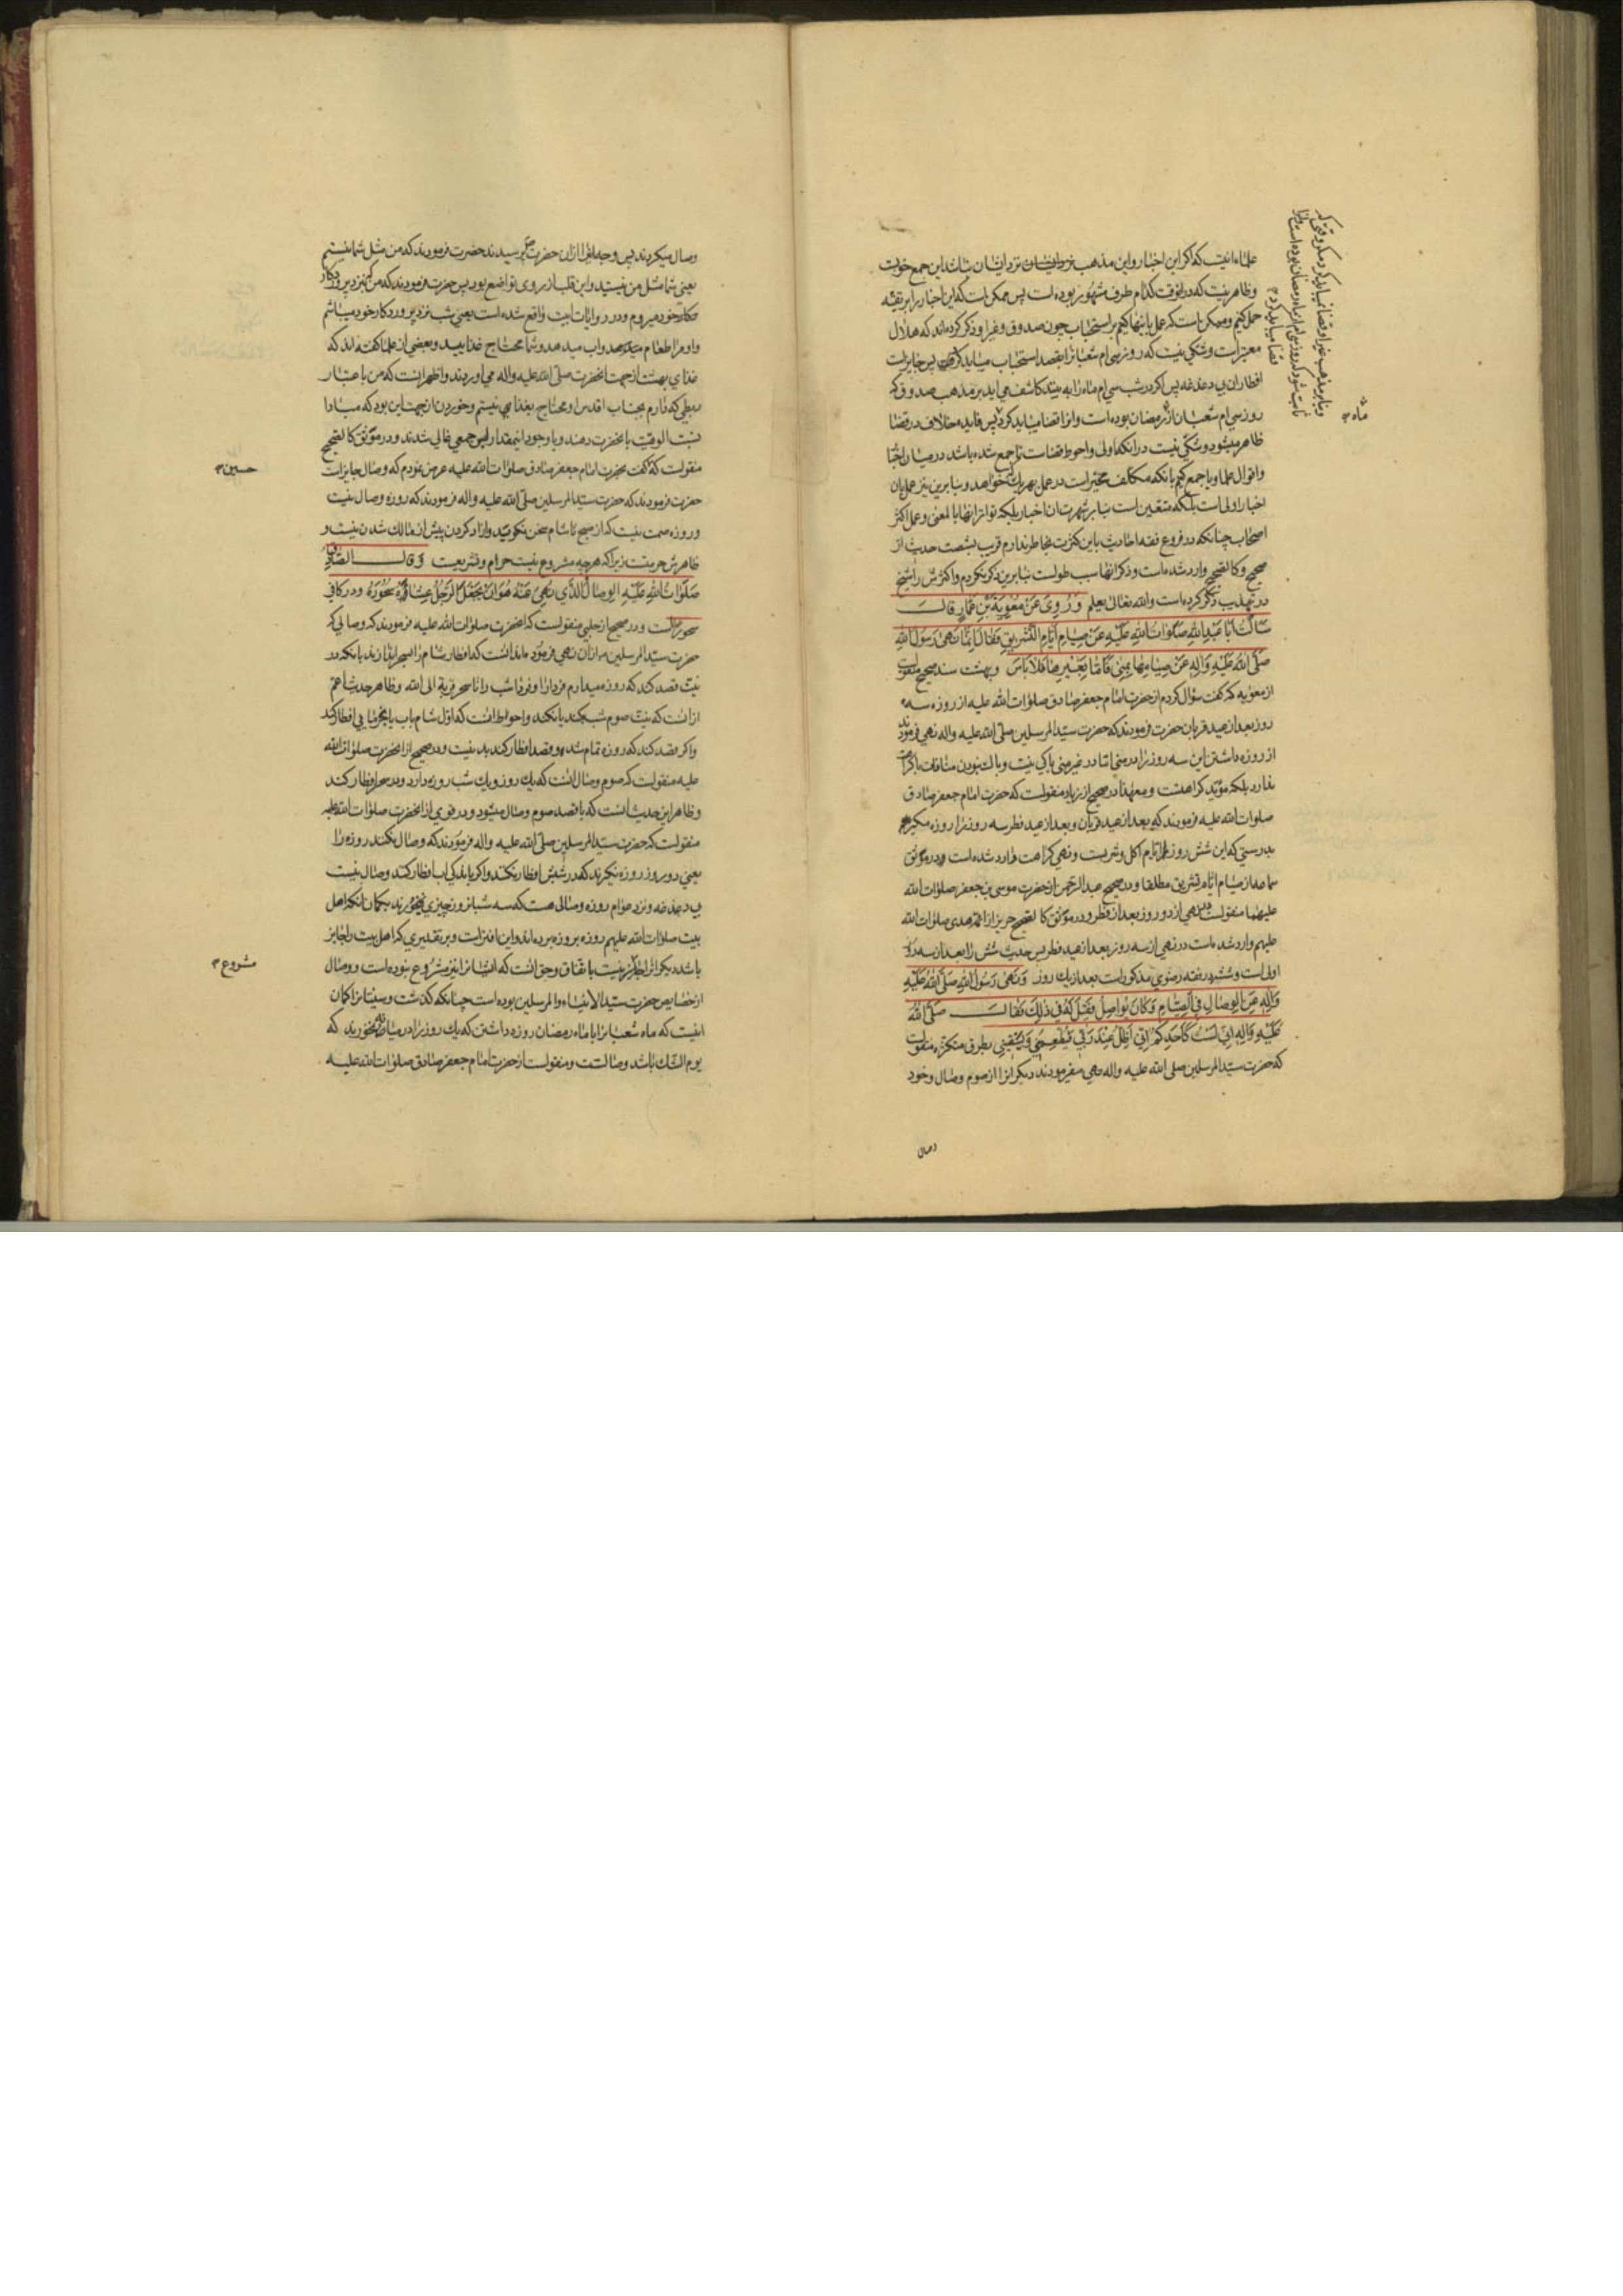 علماء انیست که اگر این اخبار و این مذهب نزد ایشان نزد ایشان باشد این جمع خوبست
و ظاهر نیست که در انوقت کدام طرف مشهور بوده است پس ممکن است که این اخبار را بر تقیه
حمل کنیم و ممکن است که عمل باینها کنیم بر استحباب چون صدوق و غیر او ذکر کرده‌اند که هلال
معتبر است و شکی نیست که روز سی ام شعبانرا بقصد استحباب میباید گرفت پس جایز است
افطار ان بی دغدغه پس اگر در شب سی ام ماه را به بینند کاشف می اید بر مذهب صدوق که
روز سی ام شعبان از رمضان بوده است و انرا قضا میباید کرد پس فایده خلاف در قضا
ظاهر میشود و شکی نیست در انکه اولی و احوط قضاست تا جمع شده باشد در میان اخبار
و اقوال علما و یا جمع کنیم بانکه مکلف مخیر است در عمل بهر یک که خواهد و بنابرین نیز عمل بان
اخبار اولی است بلکه متعین است بنابر شهرت ان اخبار بلکه تواتر انها بالمعنی و عمل اکثر
اصحاب چنانکه در فروع فقه احادیث باین کثرت بخاطر ندارم قریب بشصت حدیث از
صحیح و کالصحیح وارد شده است و ذکر انها سبب طولست بنابرین ذکر نکردم و اکثرش را شیخ
در تهذیب ذکر کرده است والله تعالی یعلم وَرُوِیَ عَنْ مُعٰوِیَةَ بْنِ عَمَّارٍ قالَ
سَاَلْتُ اَبَا عَبْدِ اللهِ صَلَوٰاتُ اللهِ عَلَیْهِ عَنْ صِیٰامِ اَیّٰامِ التَّشْرِیقِ فَقٰالَ اِنَّمٰا نَهیٰ رَسُولُ اللهِ
صَلَّی اللهُ عَلَیْهِ وَاٰلِهِ عَنْ صِیٰامِهٰا بِمِنیٰ فَاَمّٰا بِغَیْرِهٰا فَلاٰ بَاْسَ و بهشت سند صحیح منقولست
از معویه که گفت سؤال کردم از حضرت امام جعفر صادق صلوات الله علیه از روزه سه
روز بعد از عید قربان حضرت فرمودند که حضرت سید المرسلین صلی الله علیه واله نهی فرمودند
از روزه داشتن این سه روز را در منی اما در غیر منی باکی نیست و باک نبودن منافات باکراهت
ندارد بلکه مؤید کراهتست و معهذا در صحیح از زیاد منقولست که حضرت امام جعفر صادق
صلوات الله علیه فرمودند که بعد از عید قربان و بعد از عید فطر سه روز را روزه مگیرید
بدرستی که این شش روز ایام اکل و شربست و نهی کراهت وارد شده است و در موثق
سماعه از صیام ایام تشریق مطلقا و در صحیح عبد الرحمن از حضرت موسی بن جعفر صلوات الله
علیهما منقولست در نهی از دو روز بعد از فطر و در موثق کالصحیح حریز از ائمه هدی صلوات الله
علیهم وارد شده است در نهی از سه روز بعد از عید فطر پس حدیث شش را بعد از سه روز
اولی است و شش در فقه رضوی مذکور است بعد از یک روز وَنَهیٰ رَسُولُ اللهِ صَلَّی اللهُ عَلَیْهِ
وَاٰلِهِ عَنِ الْوِصٰالِ فِی الصِّیٰامِ وَکٰانَ یُوٰاصِلُ فَقِیلَ لَهُ فِی ذٰلِکَ فَقٰالَ صَلَّی اللهُ
عَلَیْهِ وَاٰلِهِ اِنِّی لَسْتُ کَاَحَدِکُمْ اِنِّی اَظَلُّ عِنْدَ رَبِّی فَیُطْعِمُنِی وَیَسْقِینِی بطرق متکثره منقولست
که حضرت سید المرسلین صلی الله علیه واله نهی میفرمودند دیگرانرا از صوم وصال و خود
وصال
و بنابر مذهب غیر او قضا نمیباید کرد مگر وقتی که
ثابت شود که روز سی ام از ماه رمضان بوده است و انرا
قضا میباید کرد م
ماه
وصال میکردند پس وجه انرا از ان حضرت پرسیدند حضرت فرمودند که من مثل شما نیستم
یعنی شما مثل من نیستید و این قلب از روی تواضع بود پس حضرت فرمودند که من نزد پروردکار
خود میروم و در روایات ابیت واقع شده است یعنی شب نزد پروردکار خود میباشم
و او مرا طعام میدهد و اب میدهد و شما محتاج غذایید و بعضی از علما گفته اند که
غذای بهشت از جهت انحضرت صلی الله علیه واله می اوردند و اظهر انست که من باعتبار
ربطی که دارم بجناب اقدس او محتاج بغذا نیستم و خوردن از جهت این بود که مبادا
نسبت الوهیت بانحضرت دهند و با وجود اینمقدار پس جمعی غالی شدند و در موثق کالصحیح
منقولست که گفت بحضرت امام جعفر صادق صلوات الله علیه عرض نمودم که وصال جایز است
حضرت فرمودند که حضرت سید المرسلین صلی الله علیه واله فرمودند که روزه وصال نیست
و روزه صمت نیست که از صبح تا شام سخن نگویند و ازاد کردن پیش از مالک شدن نیست و
ظاهرش حرمتست زیرا که هر چه مشروع نیست حرام و تشریعست وَ قٰالَ الصّٰادِقُ
صَلَوٰاتُ اللهِ عَلَیْهِ الْوِصٰالُ الَّذِی نُهِیَ عَنْهُ هُوَ اَنْ یَجْعَلَ الرَّجُلُ عِشٰاءَهُ سَحُورَهُ و در کافی
سحور است و در صحیح از حلبی منقولست که انحضرت صلوات الله علیه فرمودند که وصالی که
حضرت سید المرسلین از ان نهی فرموده اند انست که افطار شام را بسحر اندازند بانکه در
نیت قصد کند که روزه میدارم فردا را و فردا شب را تا سحر قربة الی الله و ظاهر حدیث اعم
از انست که نیت صوم شب کند یا نکند و احوط انست که اول شام باب یا بخرمایی افطار کند
و اگر قصد کند که روزه تمام شد و قصد افطار کند بد نیست و در صحیح از انحضرت صلوات الله
علیه منقولست که صوم وصال انست که یک روز و یک شب روزه دارد و در سحر افطار کند
و ظاهر این حدیث انست که با قصد صوم وصال میشود و در قوی از انحضرت صلوات الله علیه
منقولست که حضرت سید المرسلین صلی الله علیه واله فرمودند که وصال نکنند روزه را
یعنی دو روز روزه نگیرند که در شبش افطار نکنند و اگر باندکی اب افطار کنند وصال نیست
بی دغدغه و نزد عوام روزه وصالی هست که سه شبانروز چیزی نخورند بگمان انکه اهل
بیت صلوات الله علیهم روزه بروزه برده اند و این افتراست و بر تقدیری که اهل بیت را جایز
باشد دیگرانرا جایز نیست باتفاق و حق انست که ایشانرا نیز مشروع نبوده است و وصال
از خصایص حضرت سید الانبیاء والمرسلین بوده است چنانکه گذشت و سنیانرا گمان
انیست که ماه شعبانرا با ماه رمضان روزه داشتن که یک روز را در میان نخورند که
یوم الشک باشد وصالست و منقولست از حضرت امام جعفر صادق صلوات الله علیه
حسین م
مشروع م